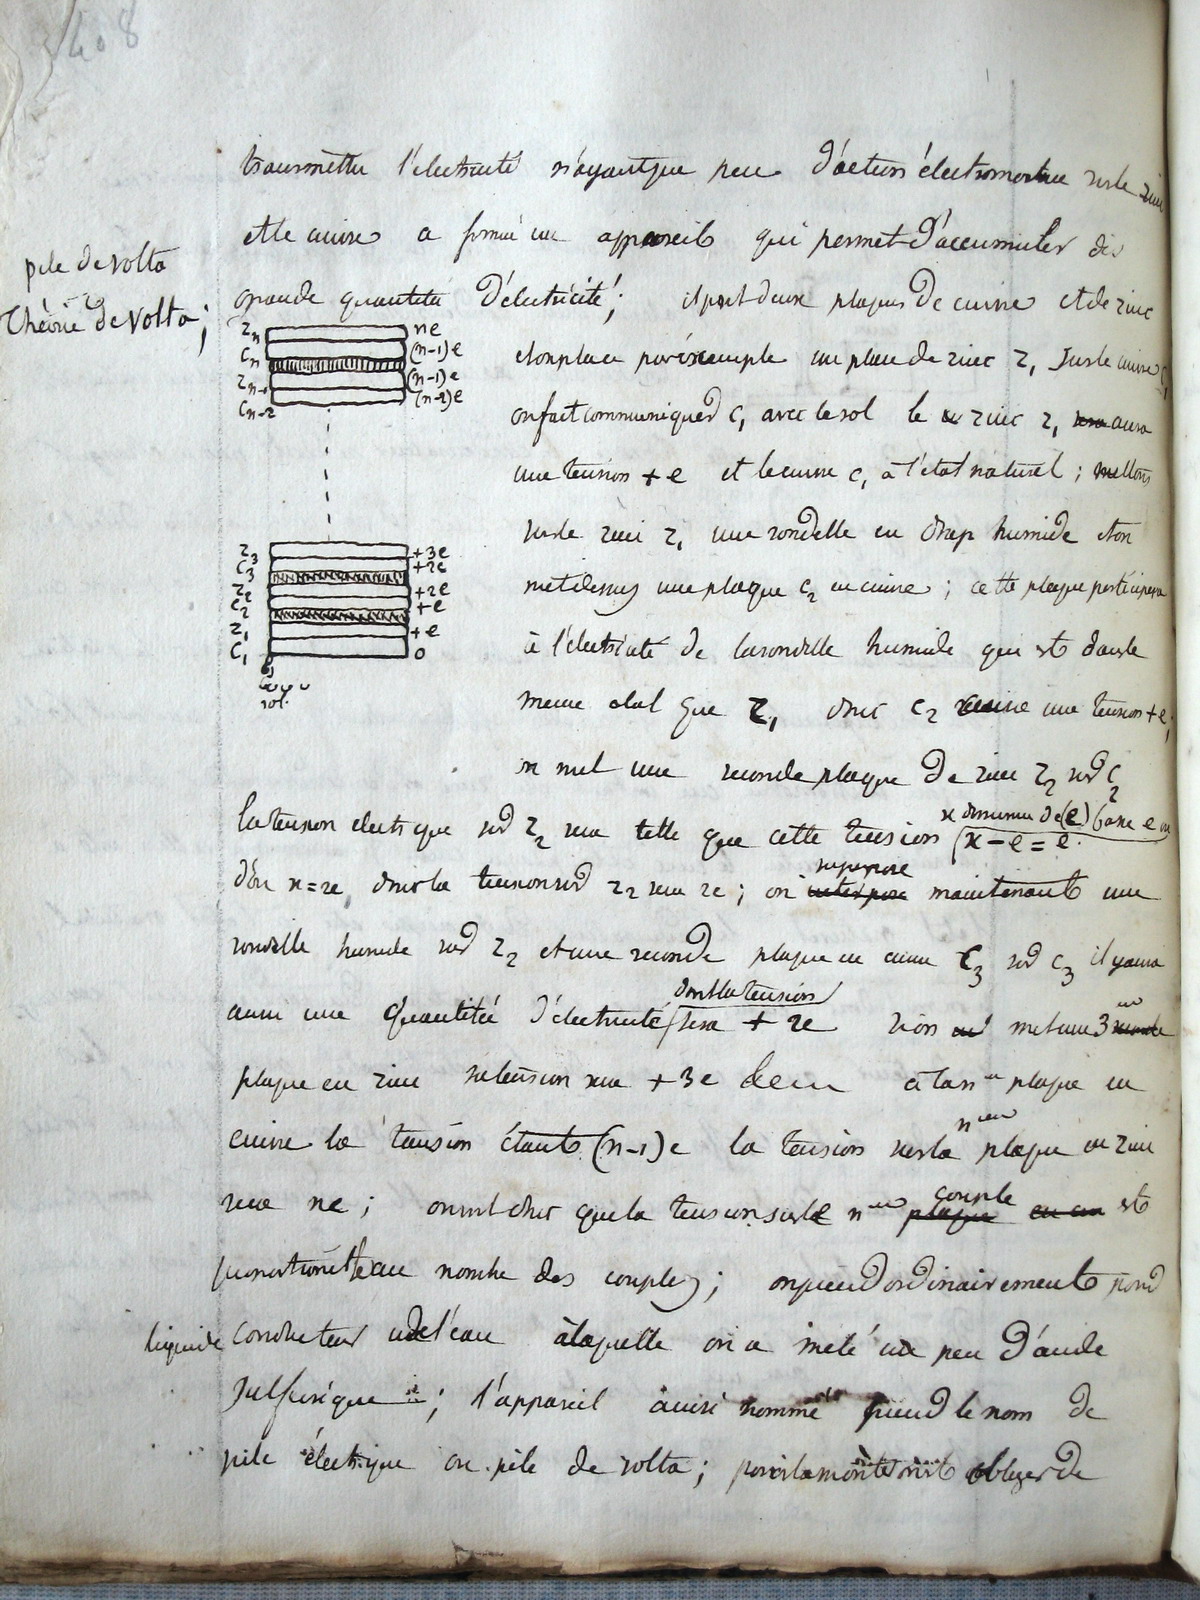 408
transmettre l'électricité n'ayant que peu d'action électromotrice sur le zinc
et le cuivre a formé un appareil qui permet d'accumuler des
pile de volta
grande quantité d'électricité; et de zinc
Théorie de Volta;
Zn ne
Cn (n-1)e
Zn-1 (n-1)e
Cn-2 (n-2)e
et on place par exemple un plaque de zinc Z1 sur le cuivre C1
on fait communiquer C1 avec le sol le zinc Z1 aura
une tension +e et le cuivre C1 à l'état naturel; mettons
sur le zinc Z1 une rondelle en drap humide et on
met dessus une plaque C2 en cuivre; cette plaque participera
à l'électricité de la rondelle humide qui est dans le
meme état que Z1 donc C2 une tension +e,
on met une seconde plaque de zinc Z2 sur C2
Z3 +3e
C3 +2e
Z2 +2e
C2 +e
Z1 +e
C1 0
sol.
la tension electrique sur Z2 sera telle que cette tension x diminué de (e) x-e=e.
d'où x=2e, donc la tension sur Z2 sera 2e; on superpose maintenant une
rondelle humide sur Z2 et une seconde plaque en cuivre C3 sur C3 il y aura
aussi une quantité d'électricité dont la tension sera +2e si on met une 3me
plaque en zinc sa tension sera +3e à la nme plaque en
cuivre la tension étant (n-1)e la tension sur la nme plaque en zinc
sera ne; on voit donc que la tension sur le nme couple est
proportionnelle au nombre des couples; on prend ordinairement pour
liquide conducteur de l'eau à laquelle on a mêlé un peu d'acide
sulfurique; l'appareil ainsi nommé prend le nom de
pile électrique ou pile de volta; obliger de